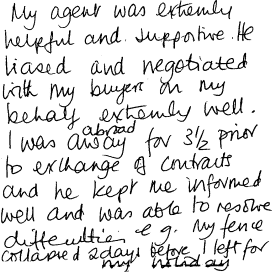 My agent was extremely
helpful and supportive. He
liased and negotiated
with my buyers on my
behalf extremely well.
I was away abroad for 3½ prior
to exchange of contracts
and he kept me informed
well and was able to resolve
difficulties e.g. my fence
collapsed 2 days before I left for
my holiday